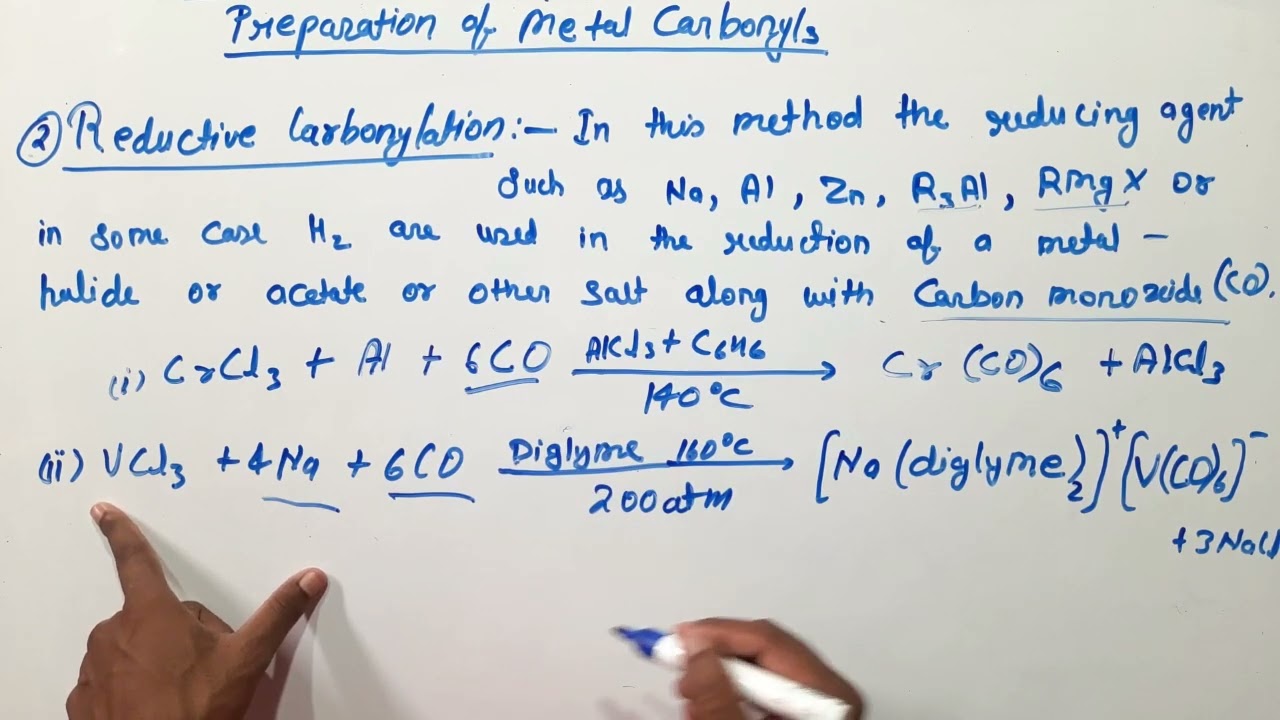 Preparation of Metal Carbonyls
② Reductive Carbonylation:– In this method the reducing agent
Such as Na, Al, Zn, R₃Al, RMgX or
in some case H₂ are used in the reduction of a metal –
halide or acetate or other salt along with Carbon monoxide (CO).
(i) CrCl₃ + Al + 6CO AlCl₃ + C₆H₆ / 140°C → Cr(CO)₆ + AlCl₃
(ii) VCl₃ + 4Na + 6CO Diglyme 160°C / 200 atm → [Na(diglyme)₂]⁺[V(CO)₆]⁻
+ 3NaCl